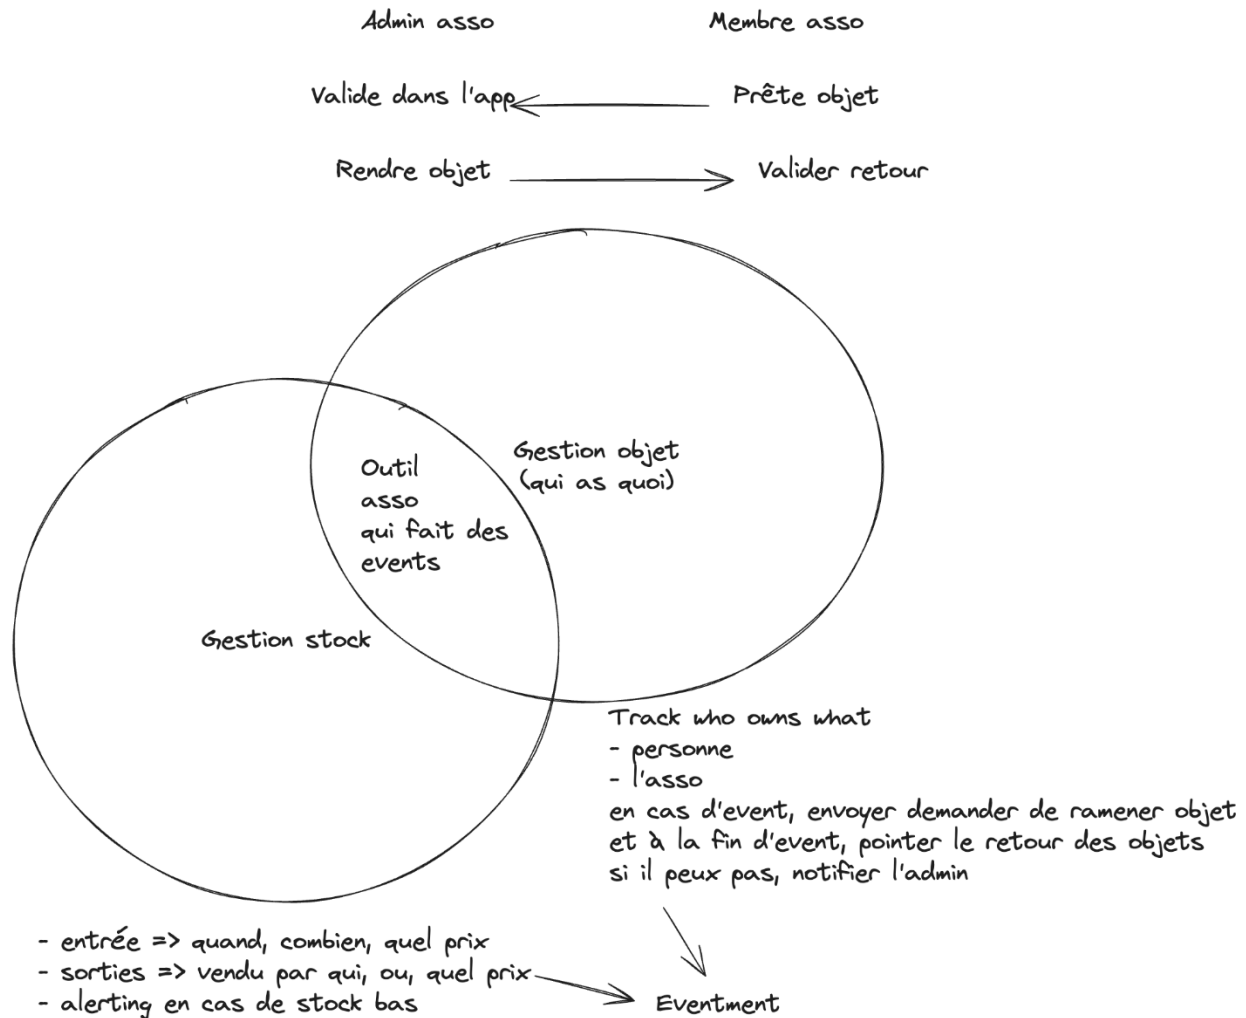 Admin asso
Membre asso
Valide dans l'app
Prête objet
Rendre objet
Valider retour
Gestion objet
(qui as quoi)
Outil
asso
qui fait des
events
Gestion stock
Track who owns what
- personne
- l'asso
en cas d'event, envoyer demander de ramener objet
et à la fin d'event, pointer le retour des objets
si il peux pas, notifier l'admin
- entrée => quand, combien, quel prix
- sorties => vendu par qui, ou, quel prix
- alerting en cas de stock bas
Eventment